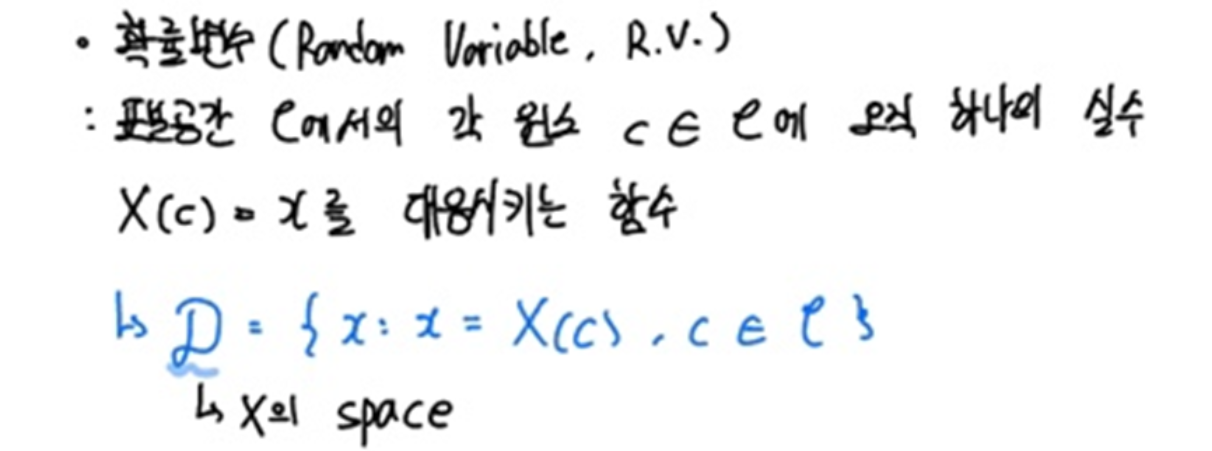 • 확률변수 (Random Variable, R.V.)
: 표본공간 𝒞에서의 각 원소 c ∈ 𝒞에 오직 하나의 실수
X(c) = x를 대응시키는 함수
↳ 𝒟 = { x : x = X(c), c ∈ 𝒞 }
↳ X의 space